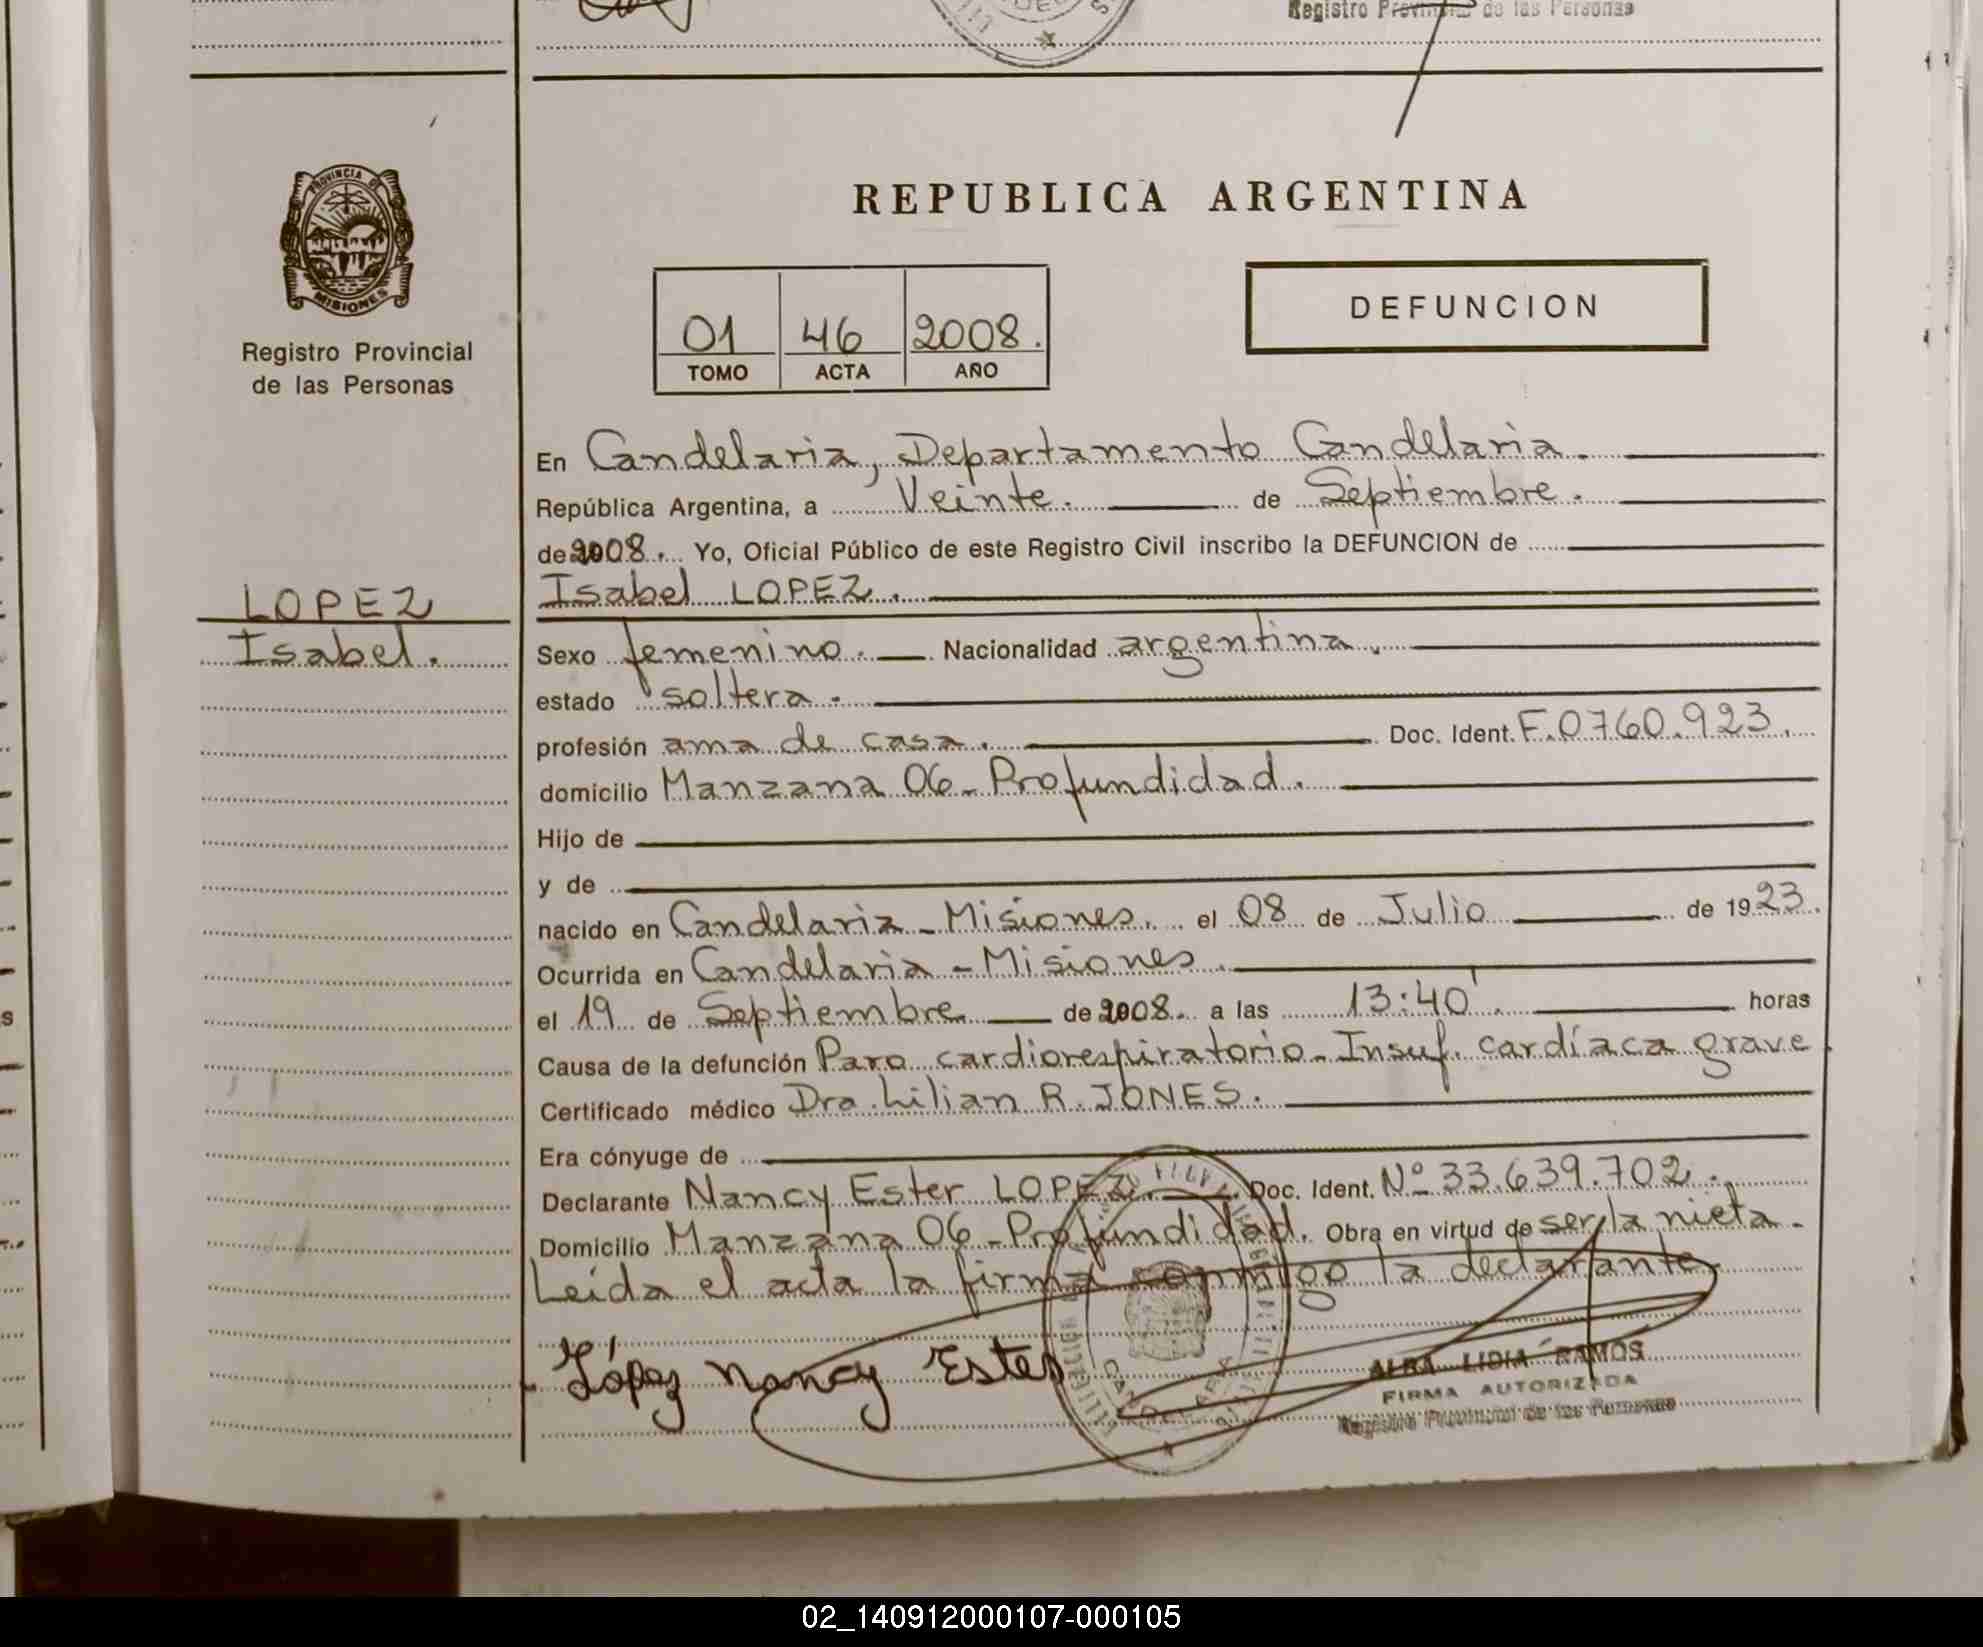 Registro Provincial de las Personas
PROVINCIA DE
MISIONES
Registro Provincial
de las Personas
LOPEZ
Isabel.
REPUBLICA ARGENTINA
01 46 2008.
TOMO ACTA AÑO
DEFUNCION
En Candelaria, Departamento Candelaria.
República Argentina, a Veinte. de Septiembre.
de 2008. Yo, Oficial Público de este Registro Civil inscribo la DEFUNCION de
Isabel LOPEZ.
Sexo femenino. Nacionalidad argentina.
estado soltera.
profesión ama de casa. Doc. Ident. F.0760.923.
domicilio Manzana 06-Profundidad.
Hijo de
y de
nacido en Candelaria-Misiones. el 08 de Julio de 1923.
Ocurrida en Candelaria-Misiones.
el 19 de Septiembre de 2008. a las 13:40'. horas
Causa de la defunción Paro cardiorespiratorio-Insuf. cardíaca grave.
Certificado médico Dra. Lilian R. JONES.
Era cónyuge de
Declarante Nancy Ester LOPEZ. Doc. Ident. Nº 33.639.702.
Domicilio Manzana 06-Profundidad. Obra en virtud de ser la nieta-
Leída el acta la firma conmigo la declarante
López Nancy Ester
CANDELARIA
ALBA LIDIA RAMOS
FIRMA AUTORIZADA
Registro Provincial de las Personas
02_140912000107-000105